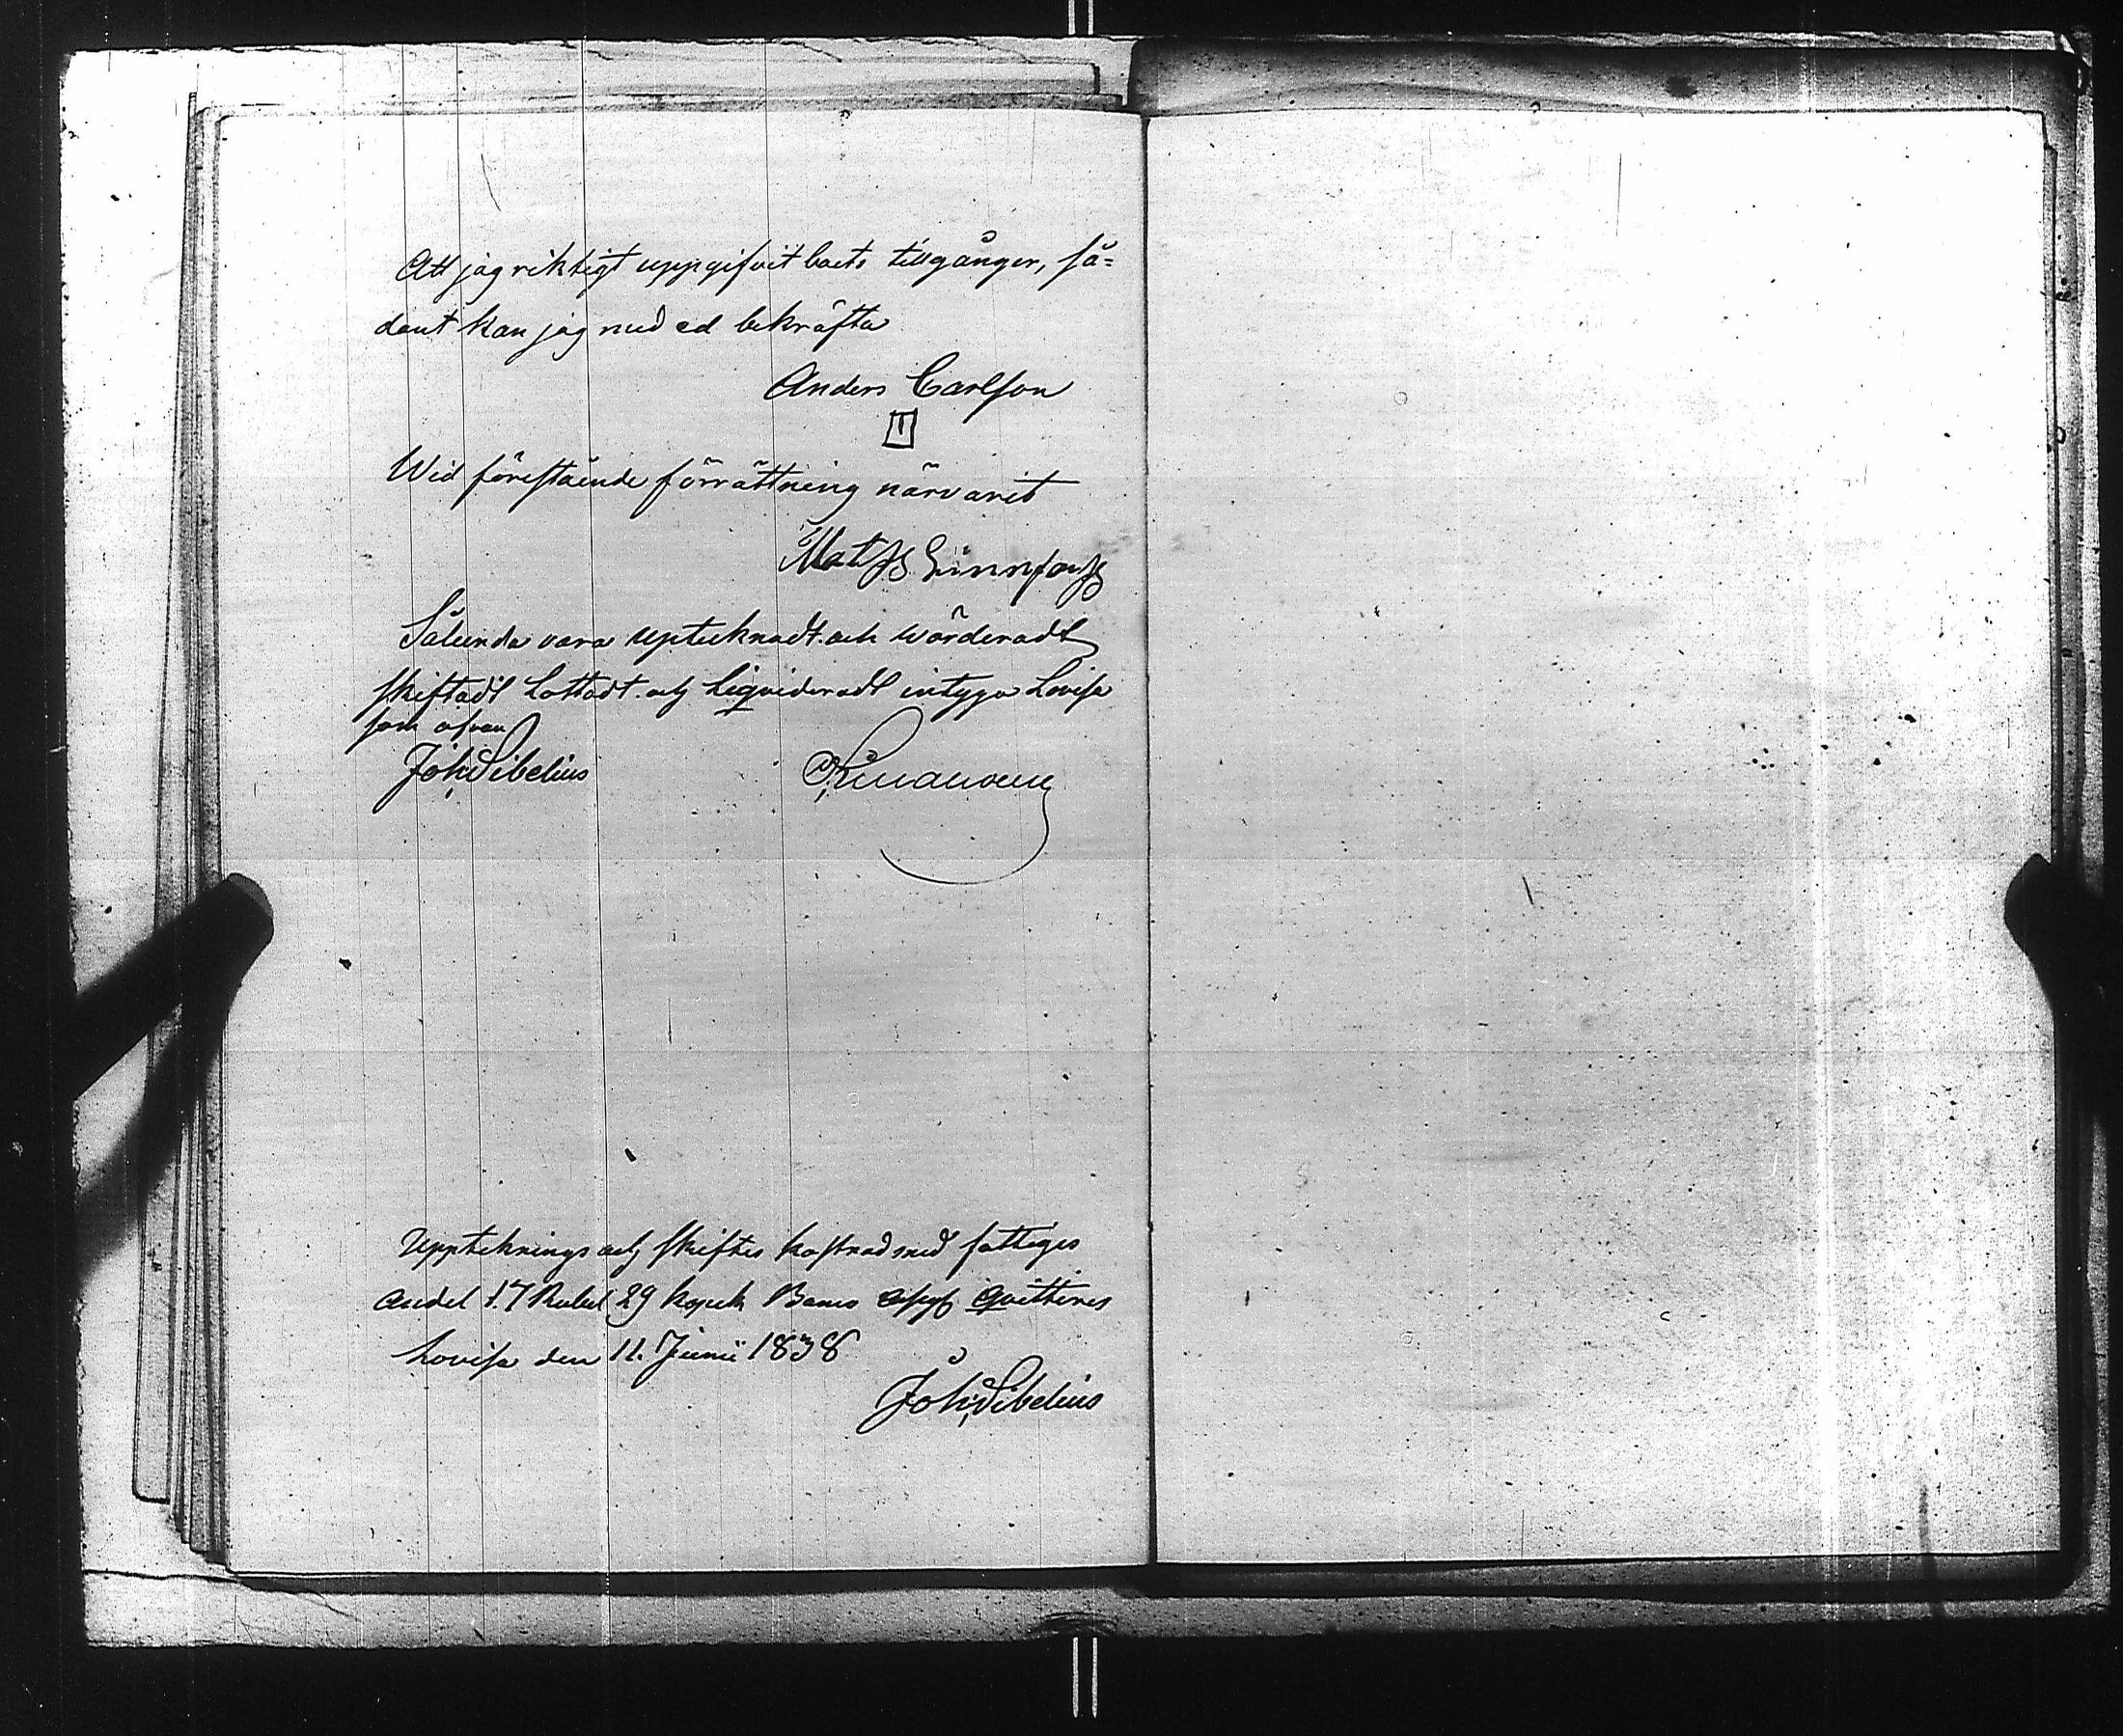 Att jag riktigt uppgifvit boets tillgånger, så=
dant kan jag med ed bekräfta
Anders Carlson
Wid föreståënde förrättning närvarit
Matss
Sålunda vara uptecknadt och wärderadt
skiftadt Lottadt och Liqvideradt intyga Lovisa
som ofvan
Joh. Sibelius
Upptecknings och skiftes kostnad med fattiges
andel 17 Rubel 29 kopek Banco Assgr qvitteres
Lovisa den 11. Junii 1838
Joh. Sibelius